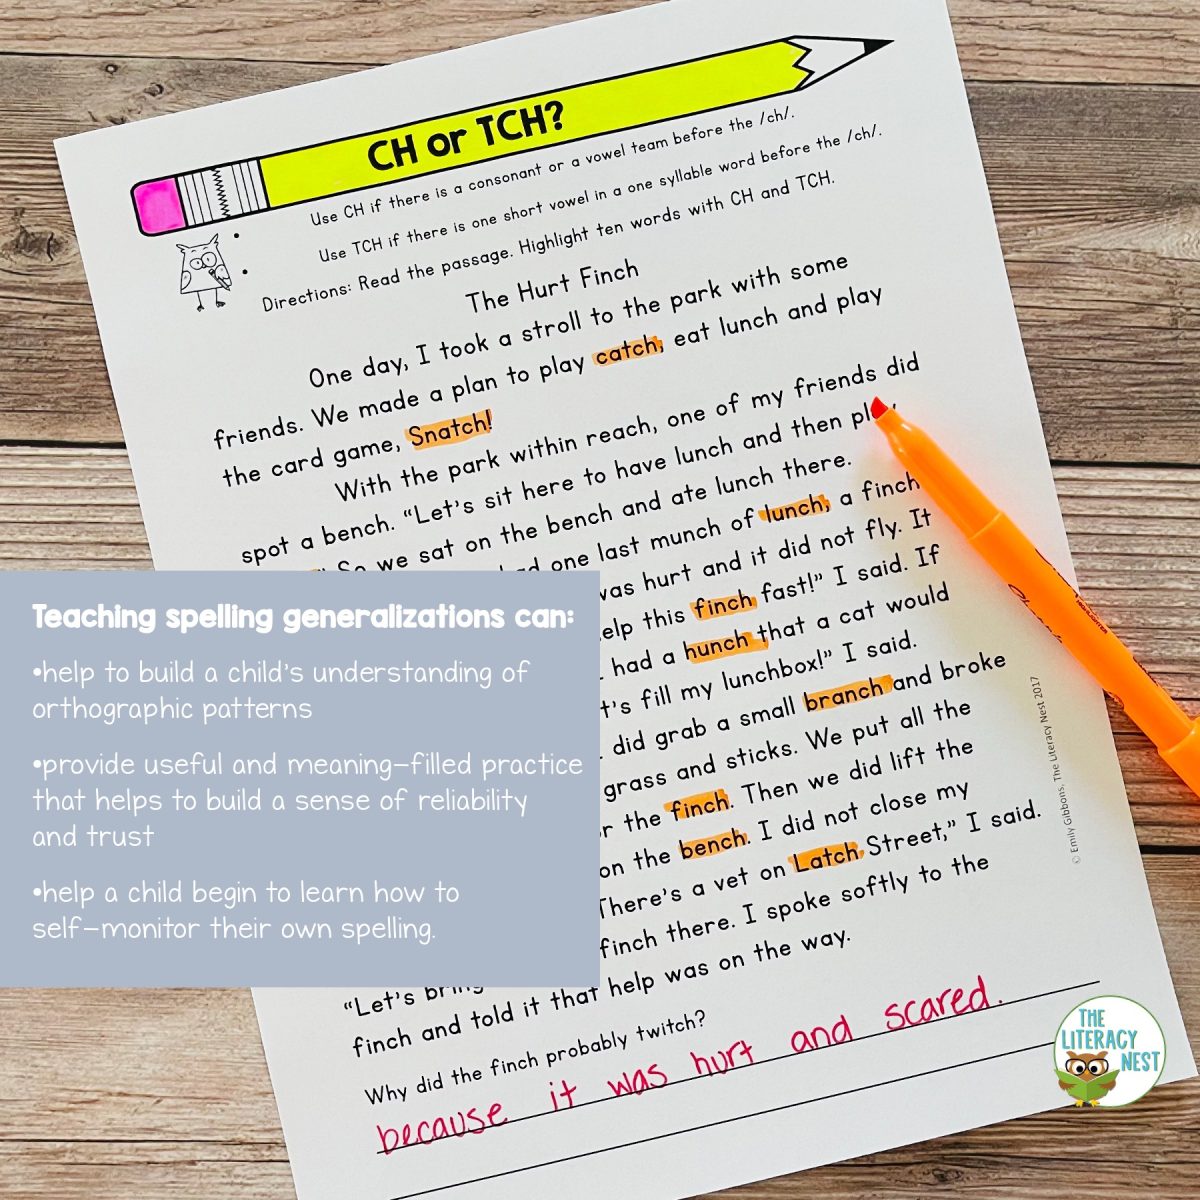 CH or TCH?
Use CH if there is a consonant or a vowel team before the /ch/.
Use TCH if there is one short vowel in a one syllable word before the /ch/.
Directions: Read the passage. Highlight ten words with CH and TCH.
The Hurt Finch
One day, I took a stroll to the park with some
friends. We made a plan to play catch, eat lunch and play
the card game, Snatch!
With the park within reach, one of my friends did
spot a bench. “Let’s sit here to have lunch and then play
So we sat on the bench and ate lunch there.
one last munch of lunch, a finch
was hurt and it did not fly. It
help this finch fast!” I said. If
had a hunch that a cat would
fill my lunchbox!” I said.
did grab a small branch and broke
grass and sticks. We put all the
the finch. Then we did lift the
on the bench. I did not close my
There’s a vet on Latch Street,” I said.
finch there. I spoke softly to the
“Let’s bring
finch and told it that help was on the way.
Why did the finch probably twitch?
because it was hurt and scared.
© Emily Gibbons, The Literacy Nest 2017
Teaching spelling generalizations can:
•help to build a child’s understanding of
orthographic patterns
•provide useful and meaning-filled practice
that helps to build a sense of reliability
and trust
•help a child begin to learn how to
self-monitor their own spelling.
THE
LITERACY
NEST